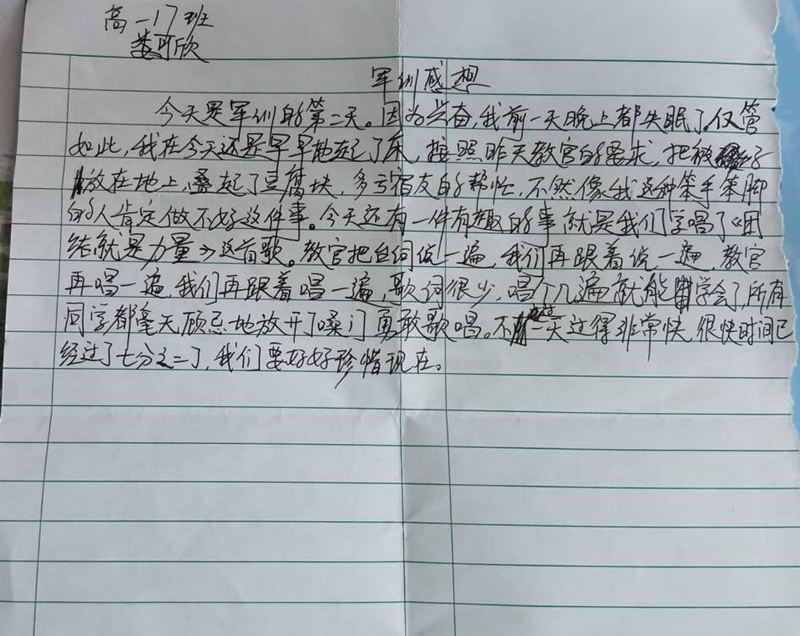 高一17班
娄可欣
军训感想
今天是军训的第二天。因为兴奋,我前一天晚上都失眠了。仅管
如此,我在今天还是早早地起了床,按照昨天教官的要求,把被子
放在地上,叠起了豆腐块,多亏宿友的帮忙,不然像我这种笨手笨脚
的人肯定做不好这件事。今天还有一件有趣的事就是我们学唱了《团
结就是力量》这首歌。教官把台词说一遍,我们再跟着说一遍,教官
再唱一遍,我们再跟着唱一遍,歌词很少,唱个几遍就能学会了,所有
同学都毫无顾忌地放开了嗓门勇敢歌唱。不一天过得非常快,很快时间已
经过了七分之二了,我们要好好珍惜现在。